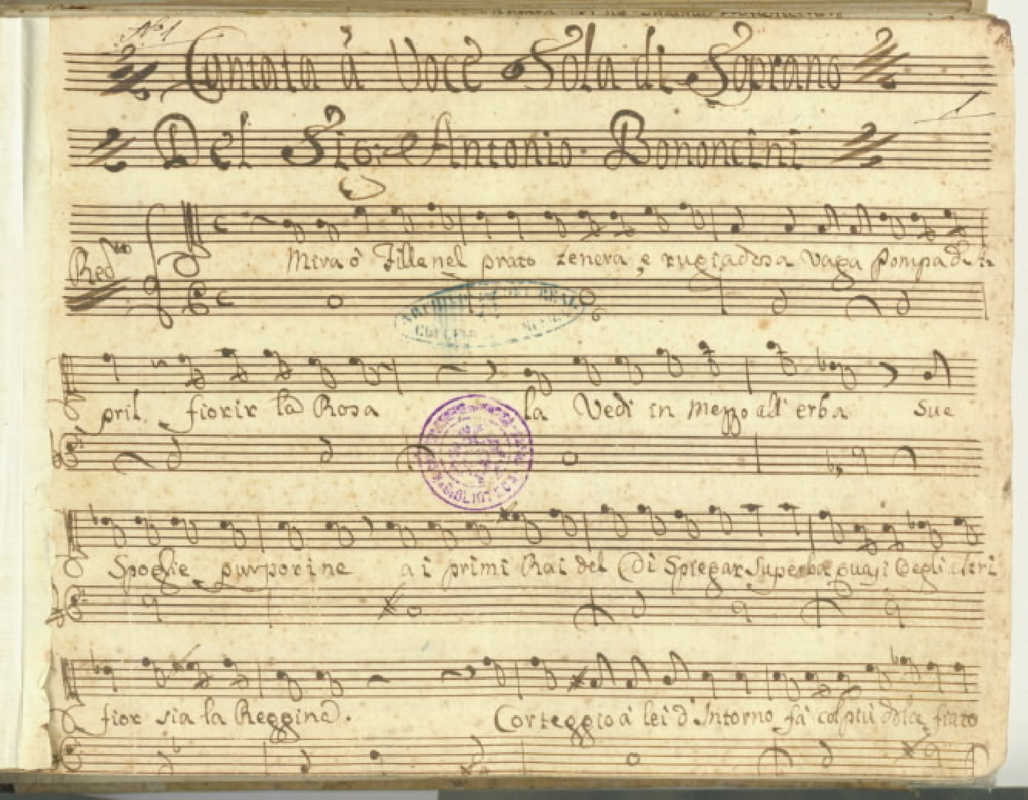 No. 1
Cantata à Voce Sola di Soprano
1
Del Sig.e Antonio Bononcini
Mira ò Fille nel prato tenera, e rugiadosa vaga pompa d'A
Red.vo
pril fiorir la Rosa la Vedi in mezzo all' erba Sue
BIBLIOTECA
Spoglie purporine a i primi Rai del di Spiegar Superba quasi degli altri
fior sia la Reggina. Corteggio à lei d'Intorno fà col più dolce fiato